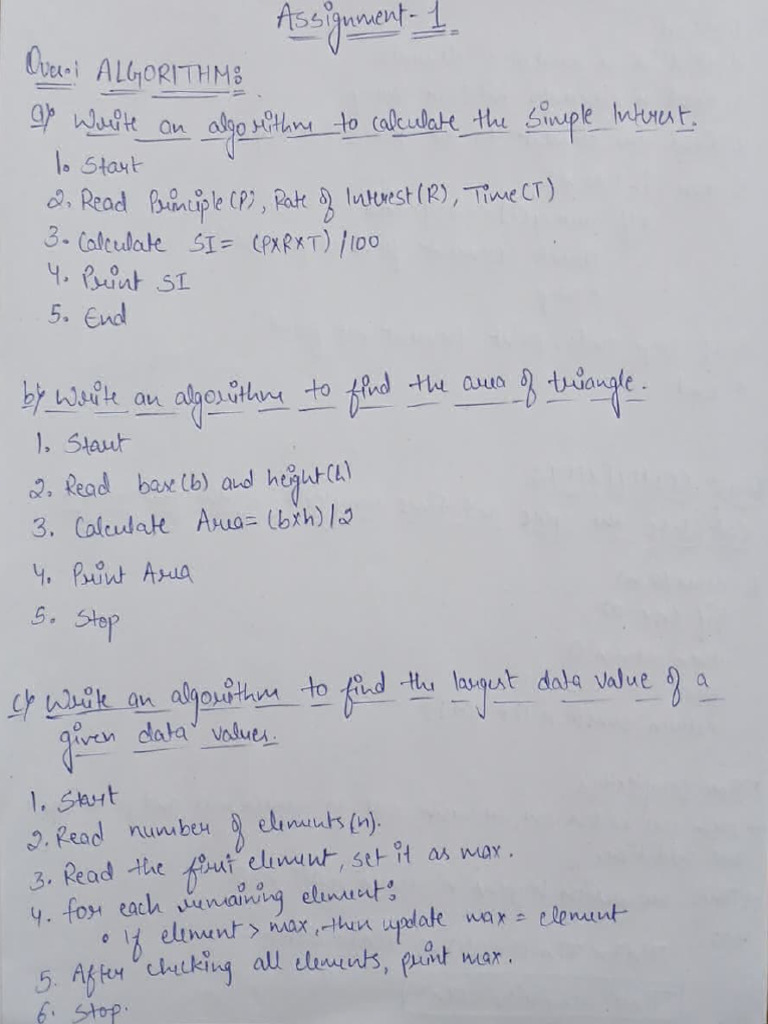 Assignment - 1
Ques:1 ALGORITHM:
a) Write an algorithm to calculate the Simple Interest.
1. Start
2. Read Principle (P), Rate of Interest (R), Time (T)
3. Calculate SI = (P×R×T) / 100
4. Print SI
5. End
b) Write an algorithm to find the area of triangle.
1. Start
2. Read base (b) and height (h)
3. Calculate Area = (b×h) / 2
4. Print Area
5. Stop
c) Write an algorithm to find the largest data value of a
given data values.
1. Start
2. Read number of elements (n).
3. Read the first element, set it as max.
4. for each remaining element:
• If element > max, then update max = element
5. After checking all elements, print max.
6. Stop.